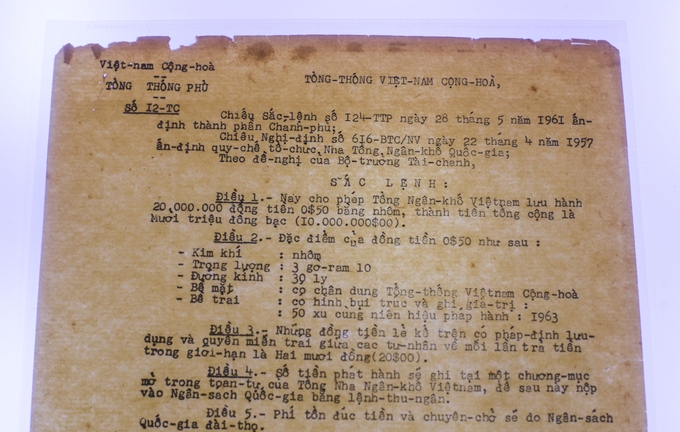 Việt-nam Cộng-hoà
TỔNG THỐNG PHỦ
TỔNG-THỐNG VIỆT-NAM CỘNG-HOÀ,
SỐ I2-TC
Chiếu Sắc-lệnh số I24-TTP ngày 28 tháng 5 năm I96I ấn-
định thành phần Chánh-phủ;
Chiếu Nghị-định số 6I6-BTC/NV ngày 22 tháng 4 năm I957
ấn-định quy-chế tổ-chức Nha Tổng Ngân-khố Quốc-gia;
Theo đề-nghị của Bộ-trưởng Tài-chánh,
SẮC LỆNH:
Điều 1.- Nay cho phép Tổng Ngân-khố Việtnam lưu hành
20.000.000 đồng tiền 0$50 bằng nhôm, thành tiền tổng cộng là
Mười triệu đồng bạc (I0.000.000$00).
Điều 2.- Đặc điểm của đồng tiền 0$50 như sau :
- Kim khí : nhôm
- Trọng lượng : 3 gờ-ram 10
- Đường kính : 30 ly
- Bề mặt : có chân dung Tổng-thống Việtnam Cộng-hoà
- Bề trái : có hình bụi trúc và ghi giá-trị :
: 50 xu cùng niên hiệu phát hành : I963
Điều 3.- Những đồng tiền lẻ kể trên có pháp-định lưu-
dụng và quyền miễn trái giữa các tư-nhân về mỗi lần trả tiền
trong giới-hạn là Hai mươi đồng(20$00).
Điều 4.- Số tiền phát hành sẽ ghi tại một chương-mục
mở trong toán-tự của Tổng Nha Ngân-khố Việtnam, để sau này nộp
vào Ngân-sách Quốc-gia bằng lệnh-thu-ngân.
Điều 5.- Phí tổn đúc tiền và chuyên-chở sẽ do Ngân-sách
Quốc-gia đài-thọ.